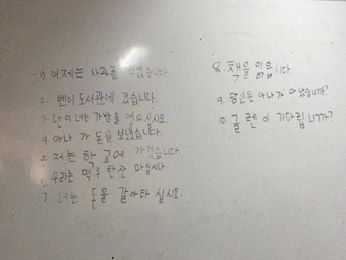 1) 어제는 사과를 먹었습니다.
2. 벤이 도서관에 갔습니다.
3. 단이 너는 가방을 여십시오.
4. 아나가 돈을 보냈습니다.
5. 저는 학교에 가겠습니다.
6. 우리는 맥주 한잔 마십시다.
7. 너는 돈을 갚아타 십시오.
8. 책을 읽읍시다.
9. 당신은 아나가 아닙니까?
10. 글렌이 기다립니까?